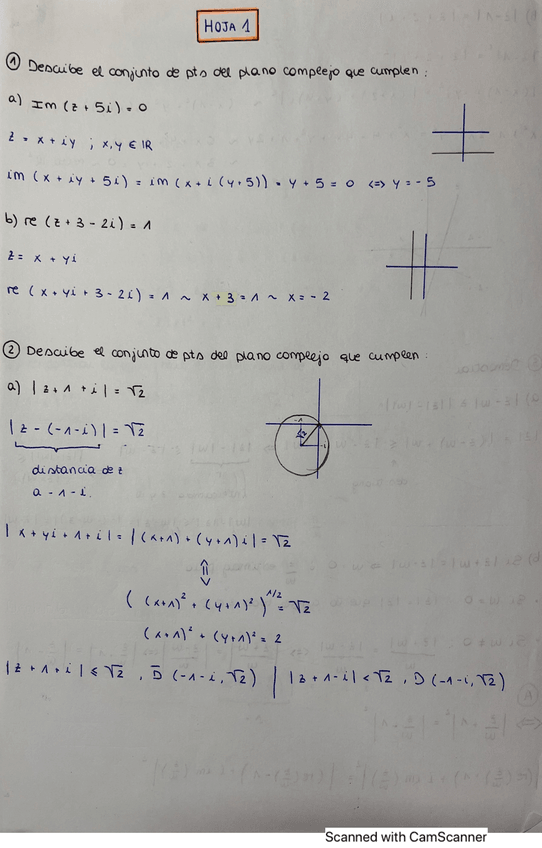 HOJA 1
① Describe el conjunto de pts del plano complejo que cumplen:
a) Im (z + 5i) = 0
z = x + iy ; x,y ∈ ℝ
im (x + iy + 5i) = im (x + i (y+5)) = y + 5 = 0 <=> y = -5
b) re (z + 3 - 2i) = 1
z = x + yi
re (x + yi + 3 - 2i) = 1 ~ x + 3 = 1 ~ x = -2
② Describe el conjunto de pts del plano complejo que cumplen:
a) | z + 1 + i | = √2
| z - (-1 - i) | = √2
distancia de z
a -1 - i.
| x + yi + 1 + i | = | (x+1) + (y+1) i | = √2
⇕
( (x+1)² + (y+1)² )^1/2 = √2
(x+1)² + (y+1)² = 2
| z + 1 + i | ≤ √2 , D̄ (-1 - i, √2) | | z + 1 - i | < √2 , D (-1 - i, √2)
Scanned with CamScanner